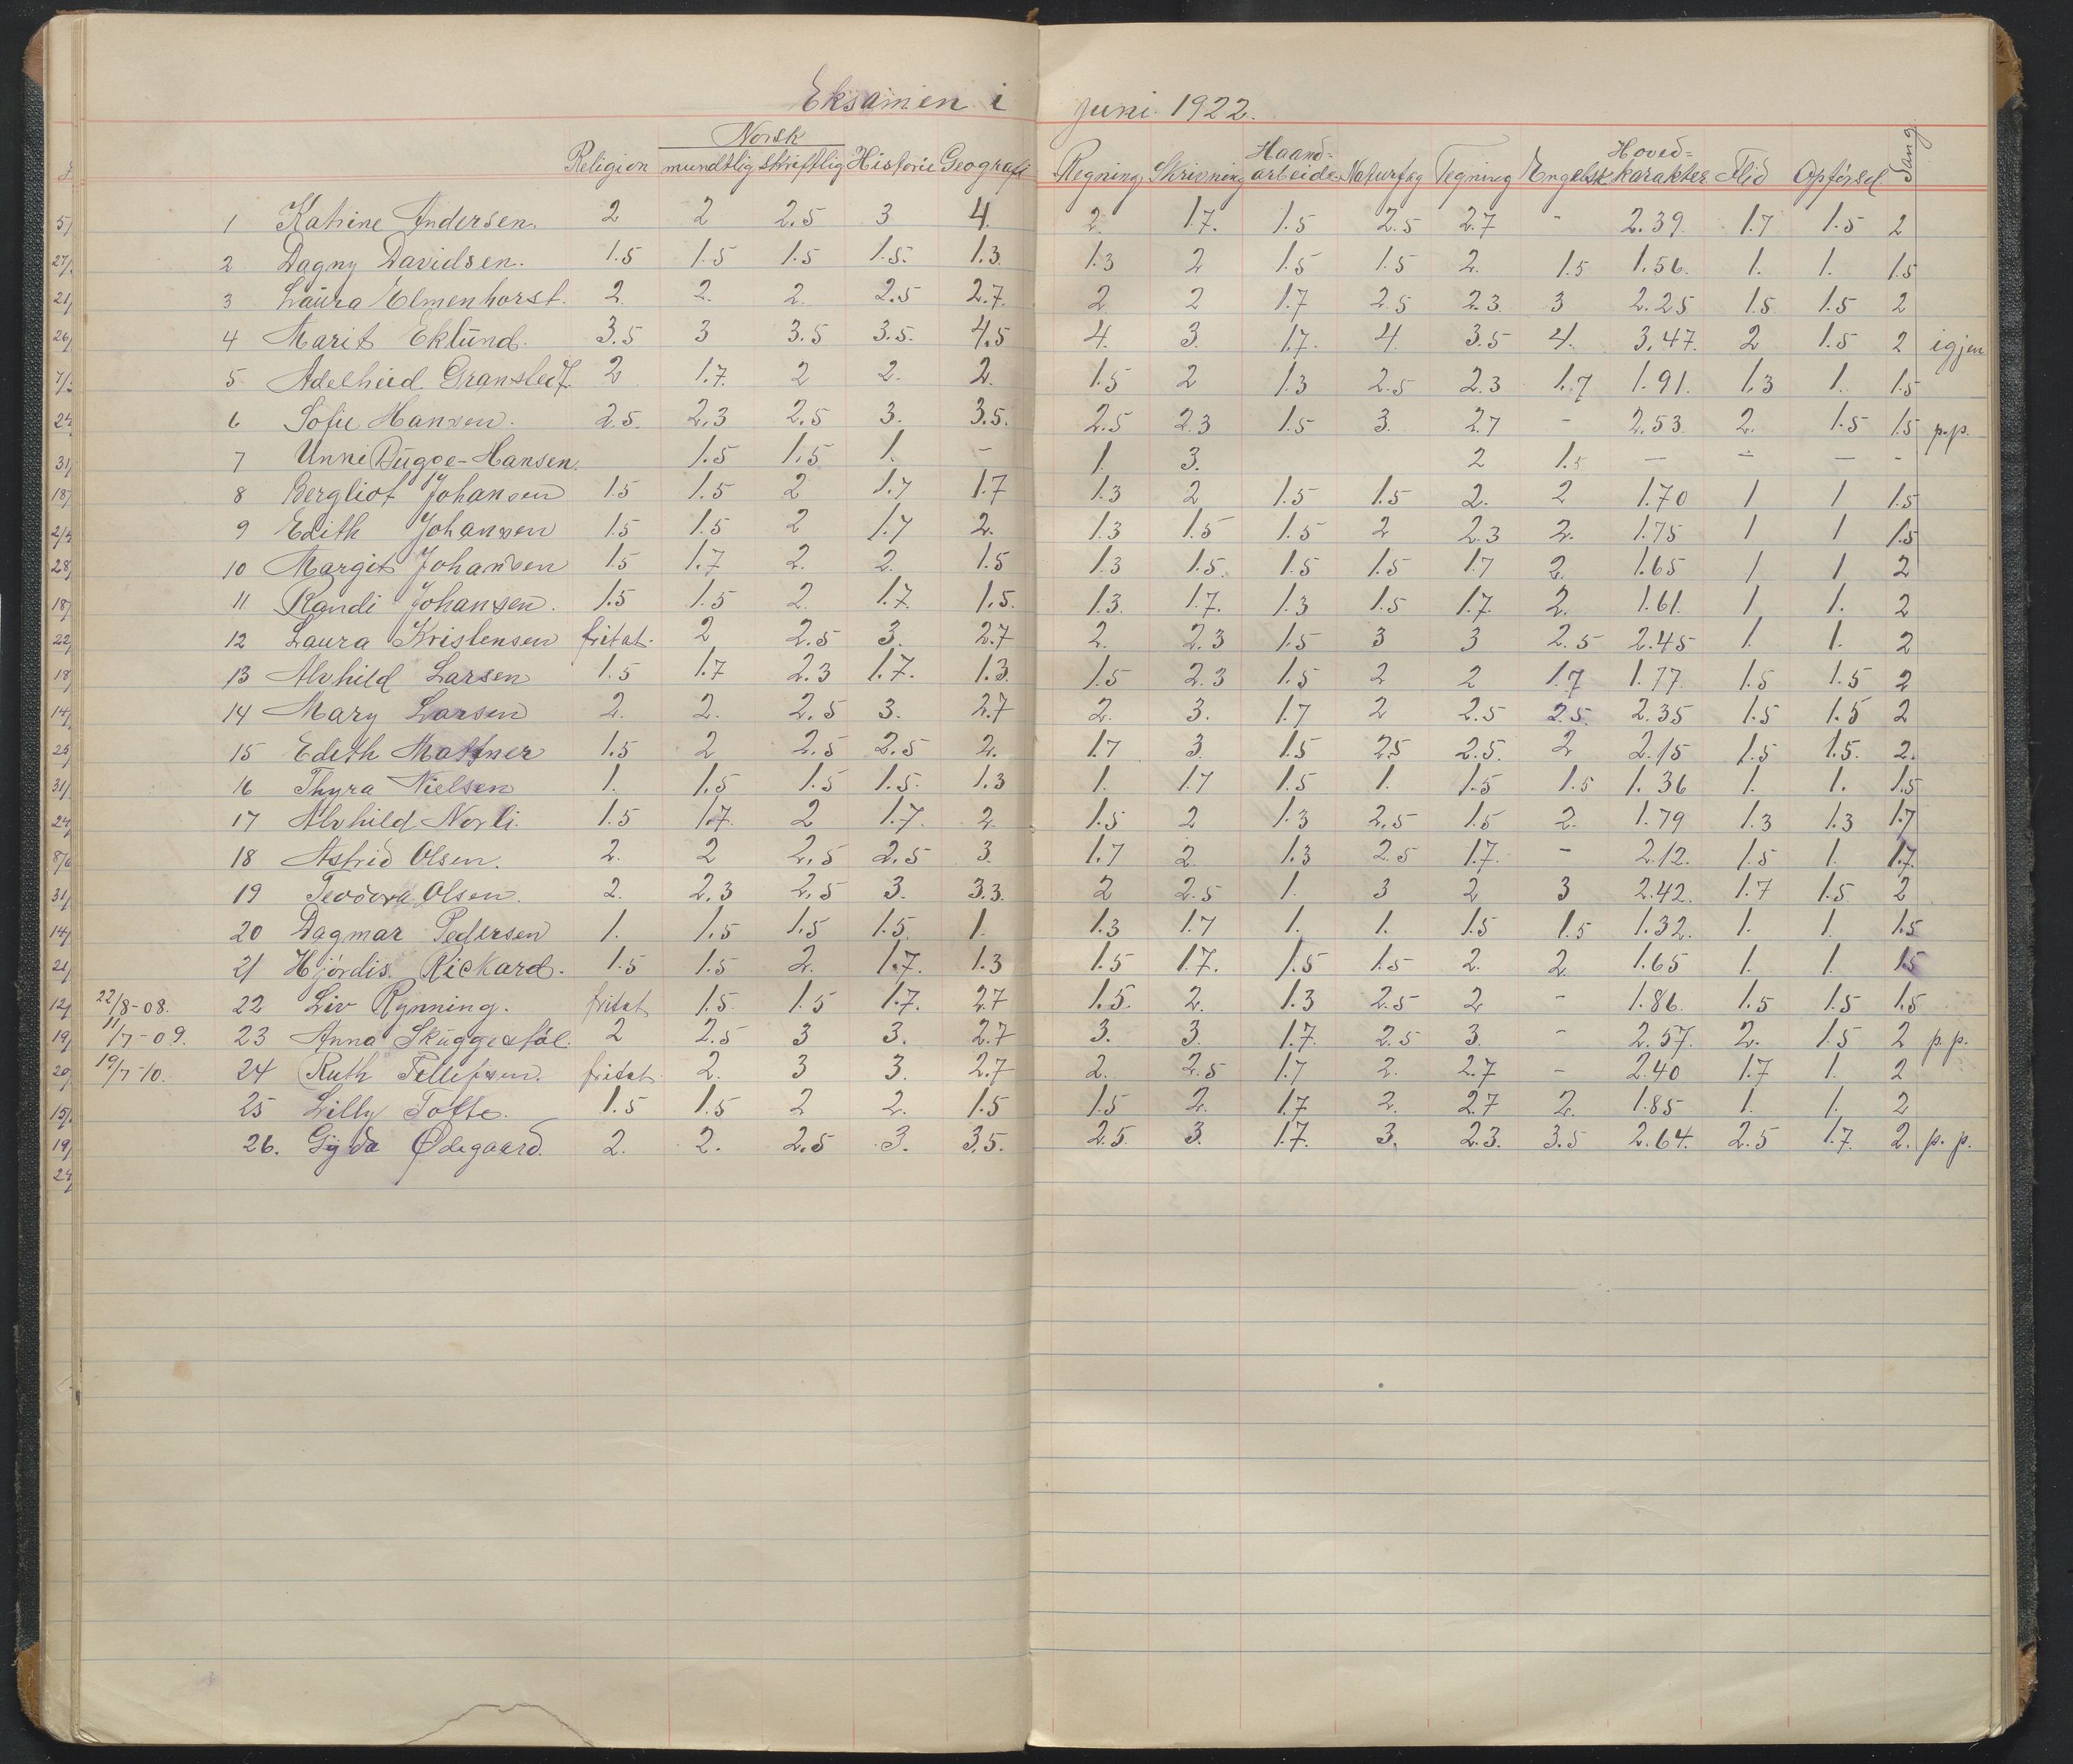 Eksamen i juni 1922.
Religion Norsk mundtlig skriftlig Historie Geografi Regning Skrivning Haand=arbeide Naturfag Tegning Engelsk Hoved=karakter Flid Opførsel Sang
1 Katrine Andersen. 2 2 2.5 3 4. 2. 1.7. 1.5 2.5 2.7 - 2.39. 1.7 1.5 2
2 Dagny Davidsen. 1.5 1.5 1.5 1.5. 1.3. 1.3 2 1.5 1.5 2. 1.5 1.56. 1. 1. 1.5
3 Laura Elmenhorst. 2. 2. 2. 2.5 2.7. 2 2 1.7 2.5 2.3 3 2.25 1.5 1.5 2
4 Marit Eklund. 3.5 3 3.5 3.5. 4.5 4. 3. 1.7. 4. 3.5 4. 3.47. 2 1.5 2 igjen
5 Adelheid 2 1.7. 2 2. 2. 1.5 2 1.3 2.5 2.3 1.7 1.91. 1.3 1. 1.5
6 Sofie Hansen. 2.5. 2.3 2.5 3. 3.5. 2.5 2.3 1.5 3. 2.7 - 2.53 2. 1.5 1.5 p.p.
7 Unni Bugge-Hansen. 1.5 1.5 1. - 1. 3. 2 1.5 - - - -
8 Bergliot Johansen 1.5 1.5 2 1.7 1.7 1.3 2 1.5 1.5 2. 2 1.70 1 1 1.5
9 Edith Johansen 1.5 1.5 2 1.7 2. 1.3 1.5 1.5 2 2.3 2. 1.75 1 1 1.5
10 Margit Johansen 1.5 1.7 2. 2. 1.5 1.3 1.5. 1.5 1.5 1.7 2. 1.65 1 1 2
11 Randi Johansen. 1.5 1.5 2. 1.7. 1.5. 1.3. 1.7. 1.3 1.5 1.7. 2. 1.61. 1 1. 2
12 Laura Kristensen fritat. 2 2.5 3. 2.7 2. 2.3 1.5 3 3 2.5 2.45 1. 1. 2
13 Alvhild Larsen 1.5 1.7 2.3 1.7. 1.3. 1.5 2.3 1.5 2 2 1.7 1.77. 1.5 1.5 2
14 Mary Larsen 2. 2. 2.5 3. 2.7 2. 3. 1.7 2 2.5 2.5. 2.35 1.5 1.5 2
15 Edith 1.5 2 2.5 2.5 2. 1.7 3. 1.5 2.5 2.5. 2 2.15 1.5 1.5. 2.
16 Thyra Nielsen 1. 1.5 1.5 1.5. 1.3 1. 1.7 1.5 1. 1.5 1.5 1.36 1. 1. 1.5
17 Alvhild Norli. 1.5 1.7. 2 1.7. 2. 1.5 2 1.3 2.5 1.5 2. 1.79 1.3 1.3 1.7
18 Astrid Olsen. 2. 2 2.5 2.5 3. 1.7 2. 1.3 2.5 1.7. - 2.12. 1.5 1. 1.7.
19 Teodora Olsen. 2. 2.3 2.5 3. 3.3. 2 2.5 1. 3 2 3 2.42. 1.7 1.5. 2
20 Dagmar Pedersen 1. 1.5 1.5 1.5. 1. 1.3 1.7 1. 1. 1.5 1.5 1.32. 1. 1. 1.5
21 Hjördis. Rickard. 1.5 1.5 2. 1.7. 1.3 1.5 1.7. 1.5 1.5 2. 2 1.65 1. 1. 1.5
22/8-08. 22 Liv Rynning. fritat 1.5. 1.5 1.7. 2.7 1.5. 2. 1.3 2.5 2 - 1.86. 1.5 1.5 1.5
11/7-09. 23 Anna Skuggestøl. 2 2.5 3 3. 2.7 3. 3. 1.7. 2.5 3. - 2.57. 2. 1.5 2 p.p.
19/7-10. 24 Ruth Tellefsen. fritat. 2. 3 3. 2.7 2. 2.5 1.7 2. 2.7 - 2.40 1.7 1. 2
25 Lilly Tofte. 1.5 1.5 2 2. 1.5 1.5 2. 1.7 2. 2.7 2. 1.85 1. 1. 2
26. Gyda Ødegaard. 2. 2. 2.5 3. 3.5. 2.5. 3. 1.7. 3. 2.3. 3.5 2.64. 2.5 1.7. 2. p.p.